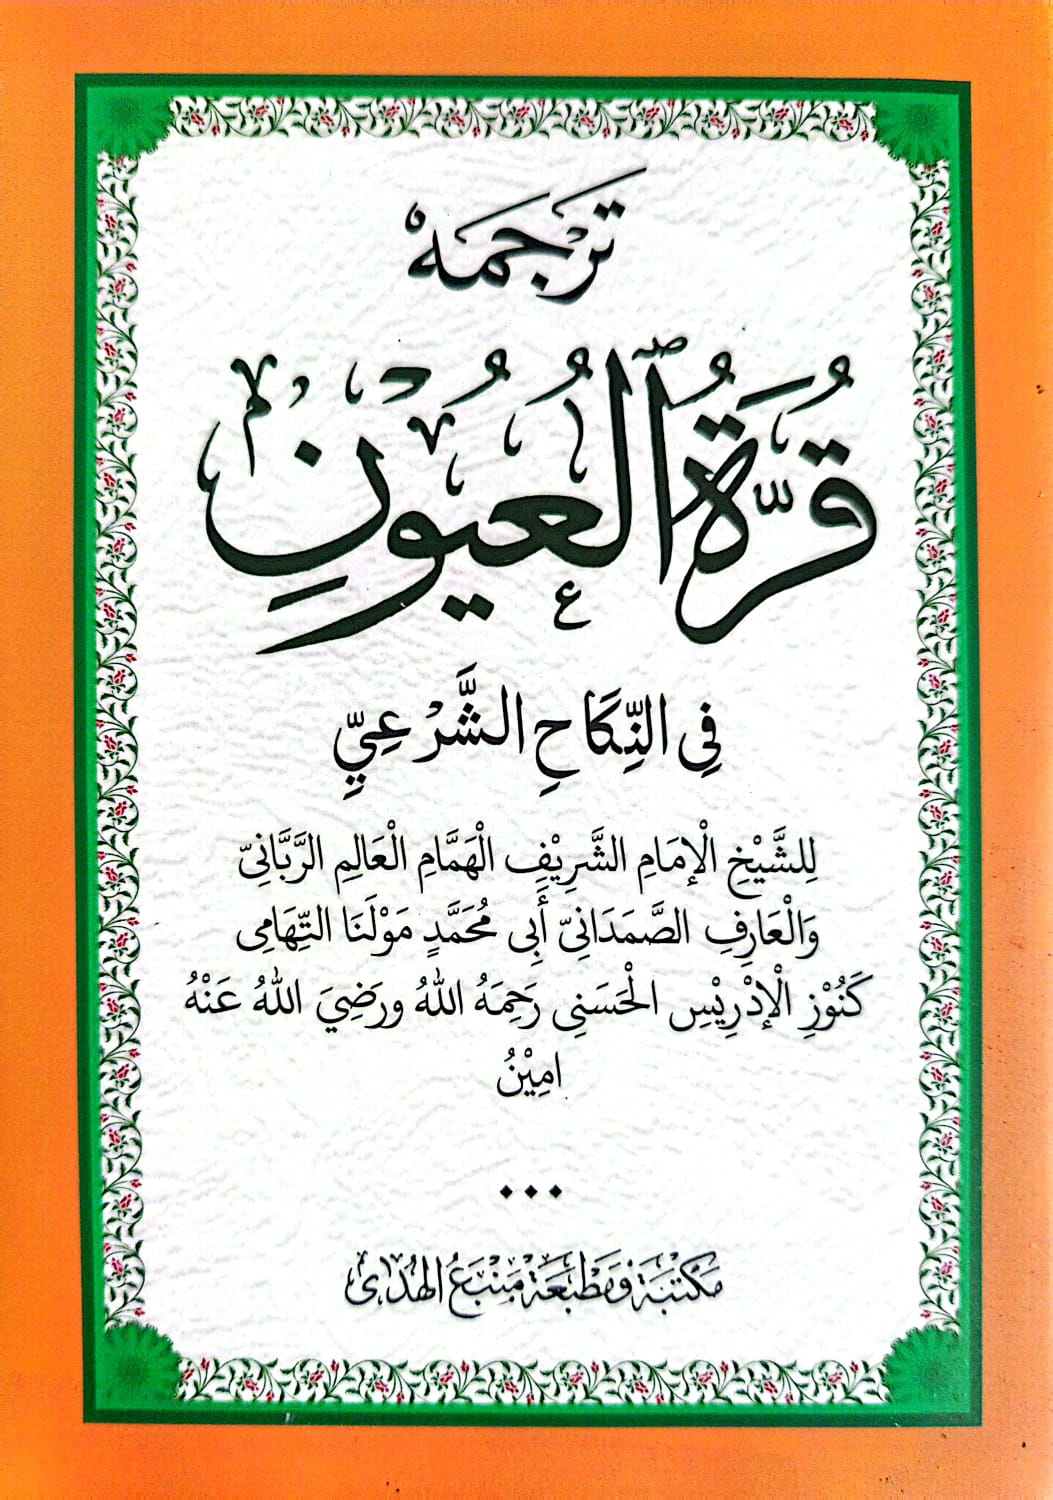 تَرْجَمَه
قُرَّةُ ٱلْعُيُوْنِ
فِى النِّكَاحِ الشَّرْعِيِّ
لِلشَّيْخِ الْإِمَامِ الشَّرِيْفِ الْهَمَّامِ الْعَالِمِ الرَّبَّانِىّ
وَالْعَارِفِ الصَّمَدَانِىّ أَبِى مُحَمَّدٍ مَوْلَنَا التِّهَامِى
كَنُوْزِ الْإِدْرِيْسِ الْحَسَنِى رَحِمَهُ اللهُ ورَضِيَ اللهُ عَنْهُ
امِيْنُ
مَكْتَبَة وَمَطْبَعَة مَنْبَعُ الْهُدَى